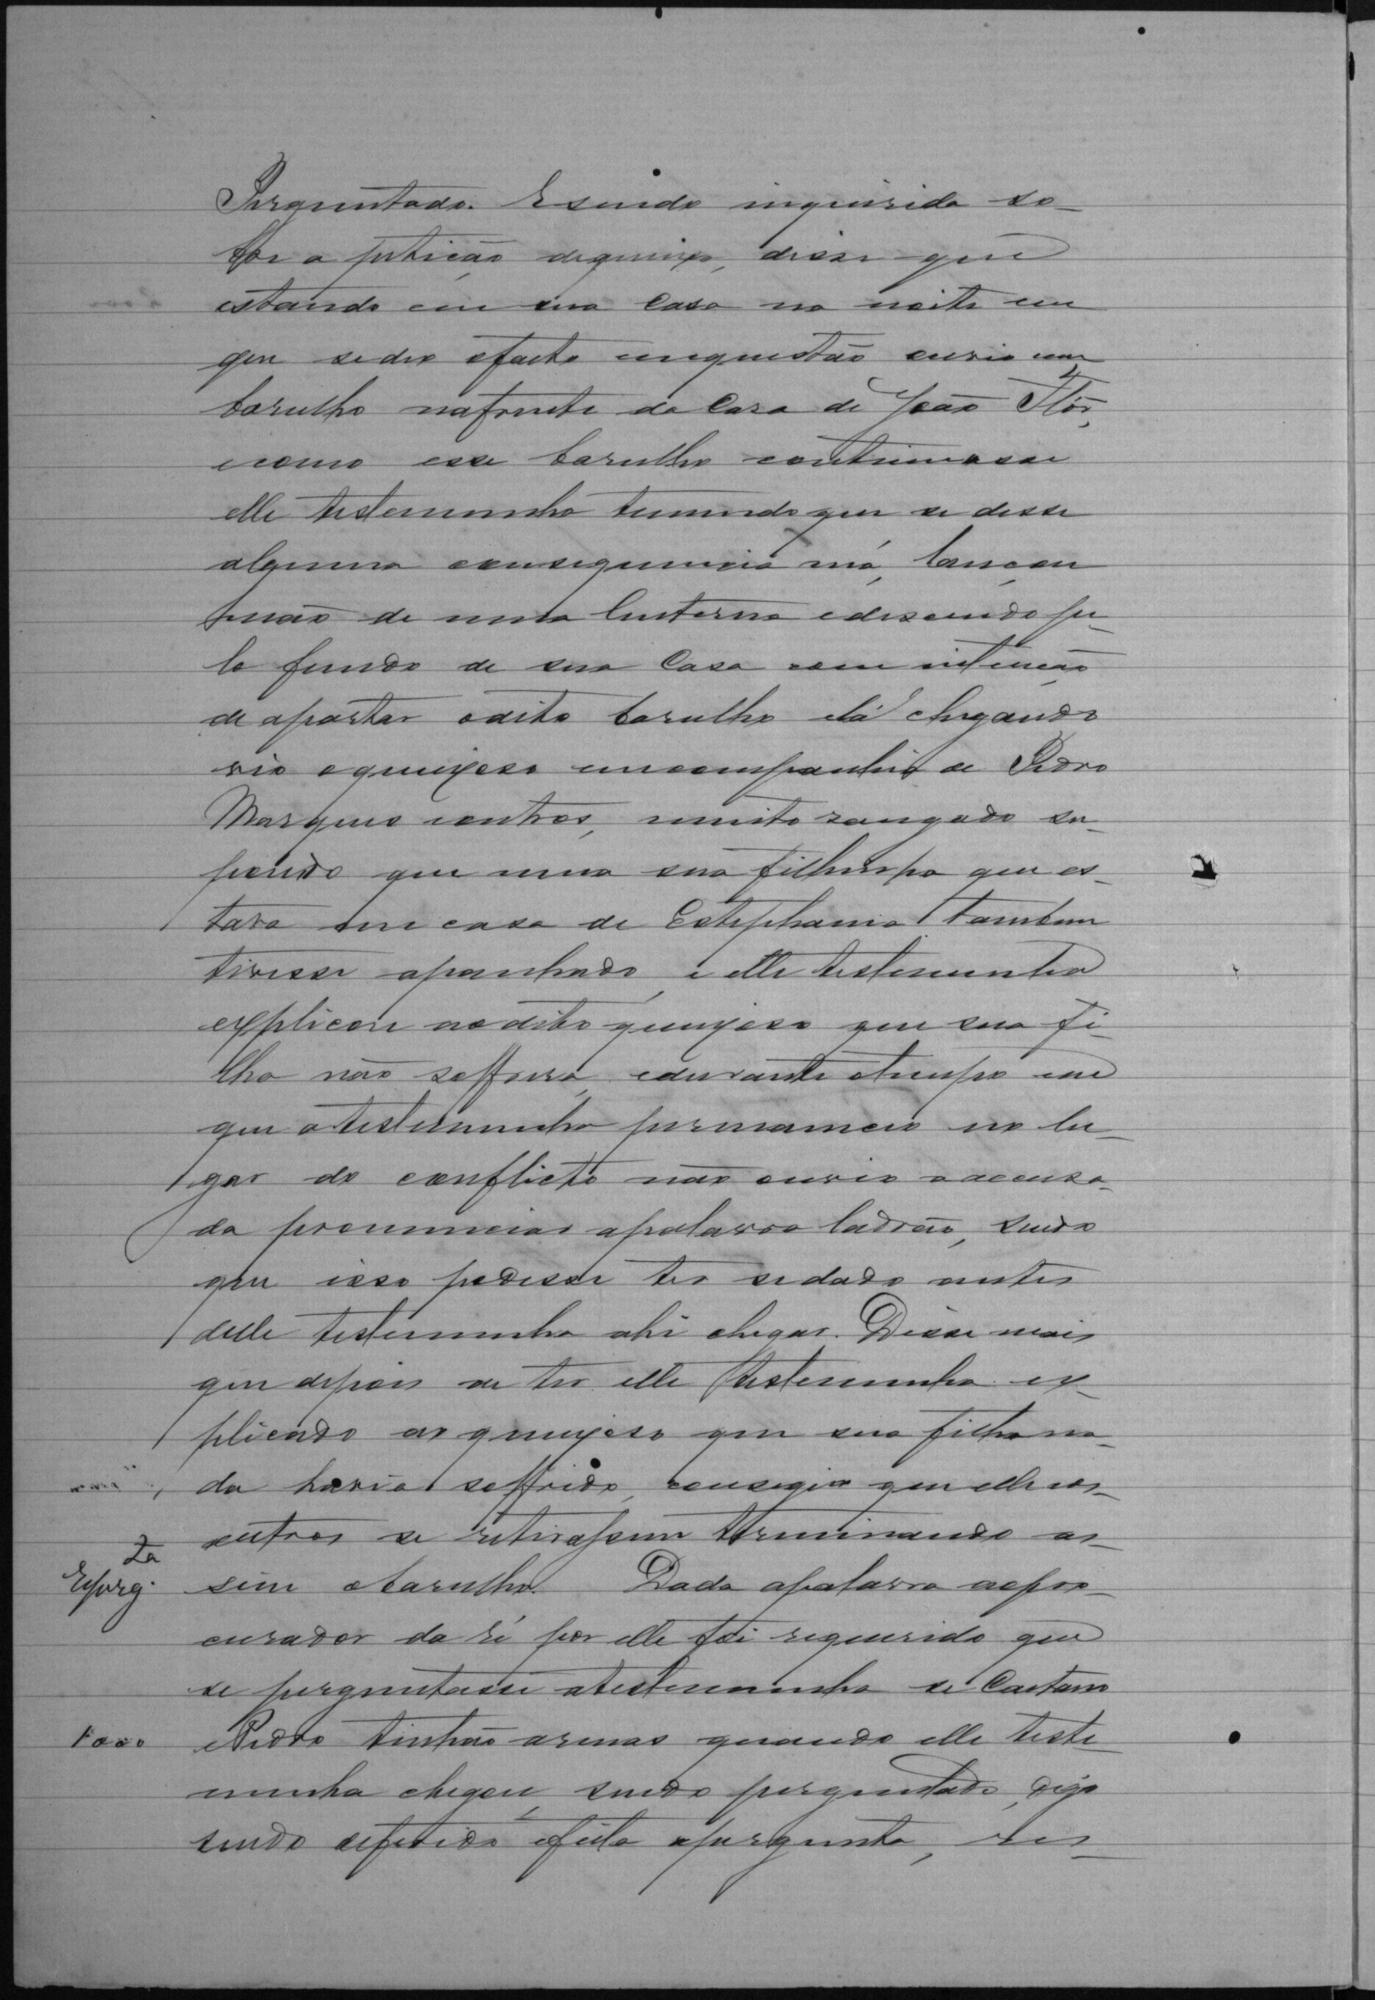 Perguntado. E sendo inquirida so-
bre a petição dequeixa, disse que
estando em sua casa na noite em
que sedeu ofacto emquestão ouvio um
barulho nafrente da casa de João Flôr,
ecomo esse barulho continuasse
elle testemunha temendo que se desse
alguma consequencia má, lançou
mão de uma lanterna edescendo pe-
lo fundo de sua casa com intenção
de apartar odito barulho elá chegando
vio oqueixoso emcompanhia de Pedro
Marques eoutros, muito zangado su-
pondo que uma sua filha que es-
tava em casa de Estephania tambem
tivesse apanhado, e elle testemunha
explicou ao dito queixoso que sua fi-
lha não soffrera, edurante otempo em
que a testemunha permaneceu no lu-
gar do conflicto não ouvio aaccusa-
da pronunciar apalavra ladrão, sendo
que isso podesse ter sedado antes
delle testemunha ahi chegar. Disse mais
que depois de ter elle testemunha ex-
plicado ao queixoso que sua filha na-
da havia soffrido, consegio que elle eos
outros se retirassem terminando as-
sim obarulho. Dada apalavra aopro-
curador da ré por elle foi requerido que
se perguntasse atestemunha se Caetano
ePedro tinhão armas quando elle teste-
munha chegou, sendo perguntado, digo
sendo deferido efeita apergunta, res-
1000